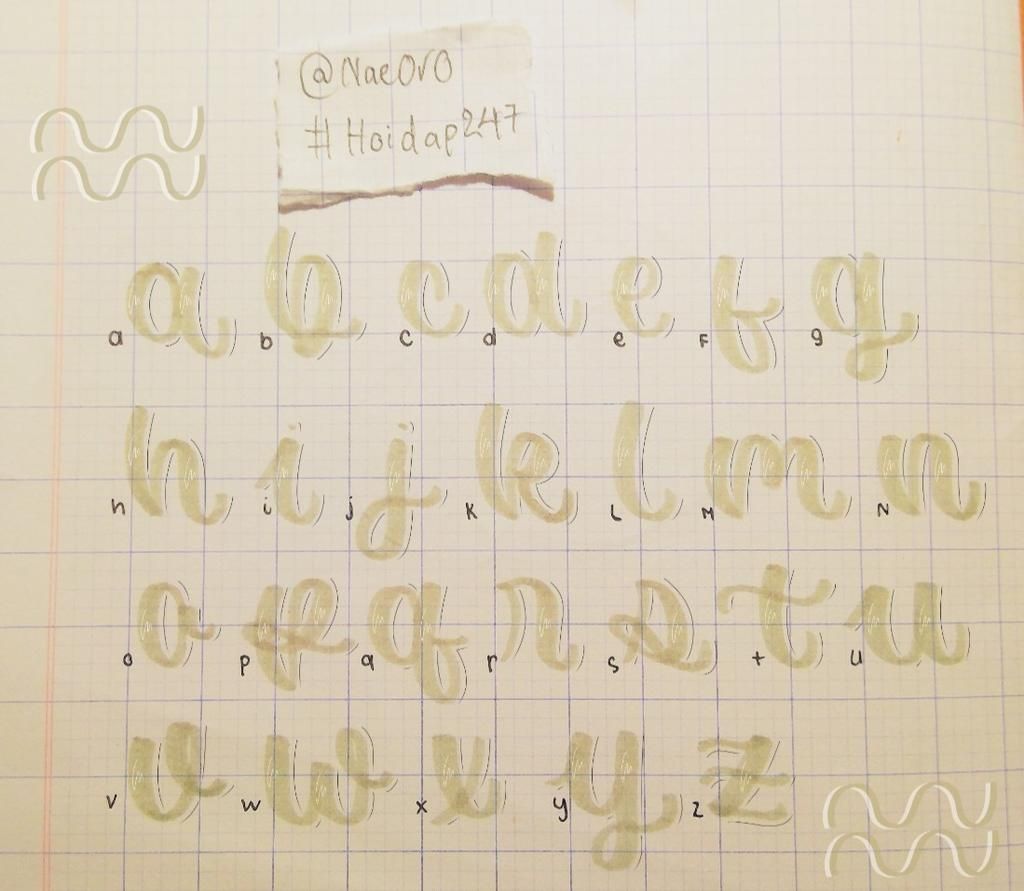 @Nae0v0
#Hoidap247
a b c d e f g
a b c d e F g
h i j k l m n
h i j K L M N
o p q r s t u
o p q r s t u
v w x y z
v w x y z